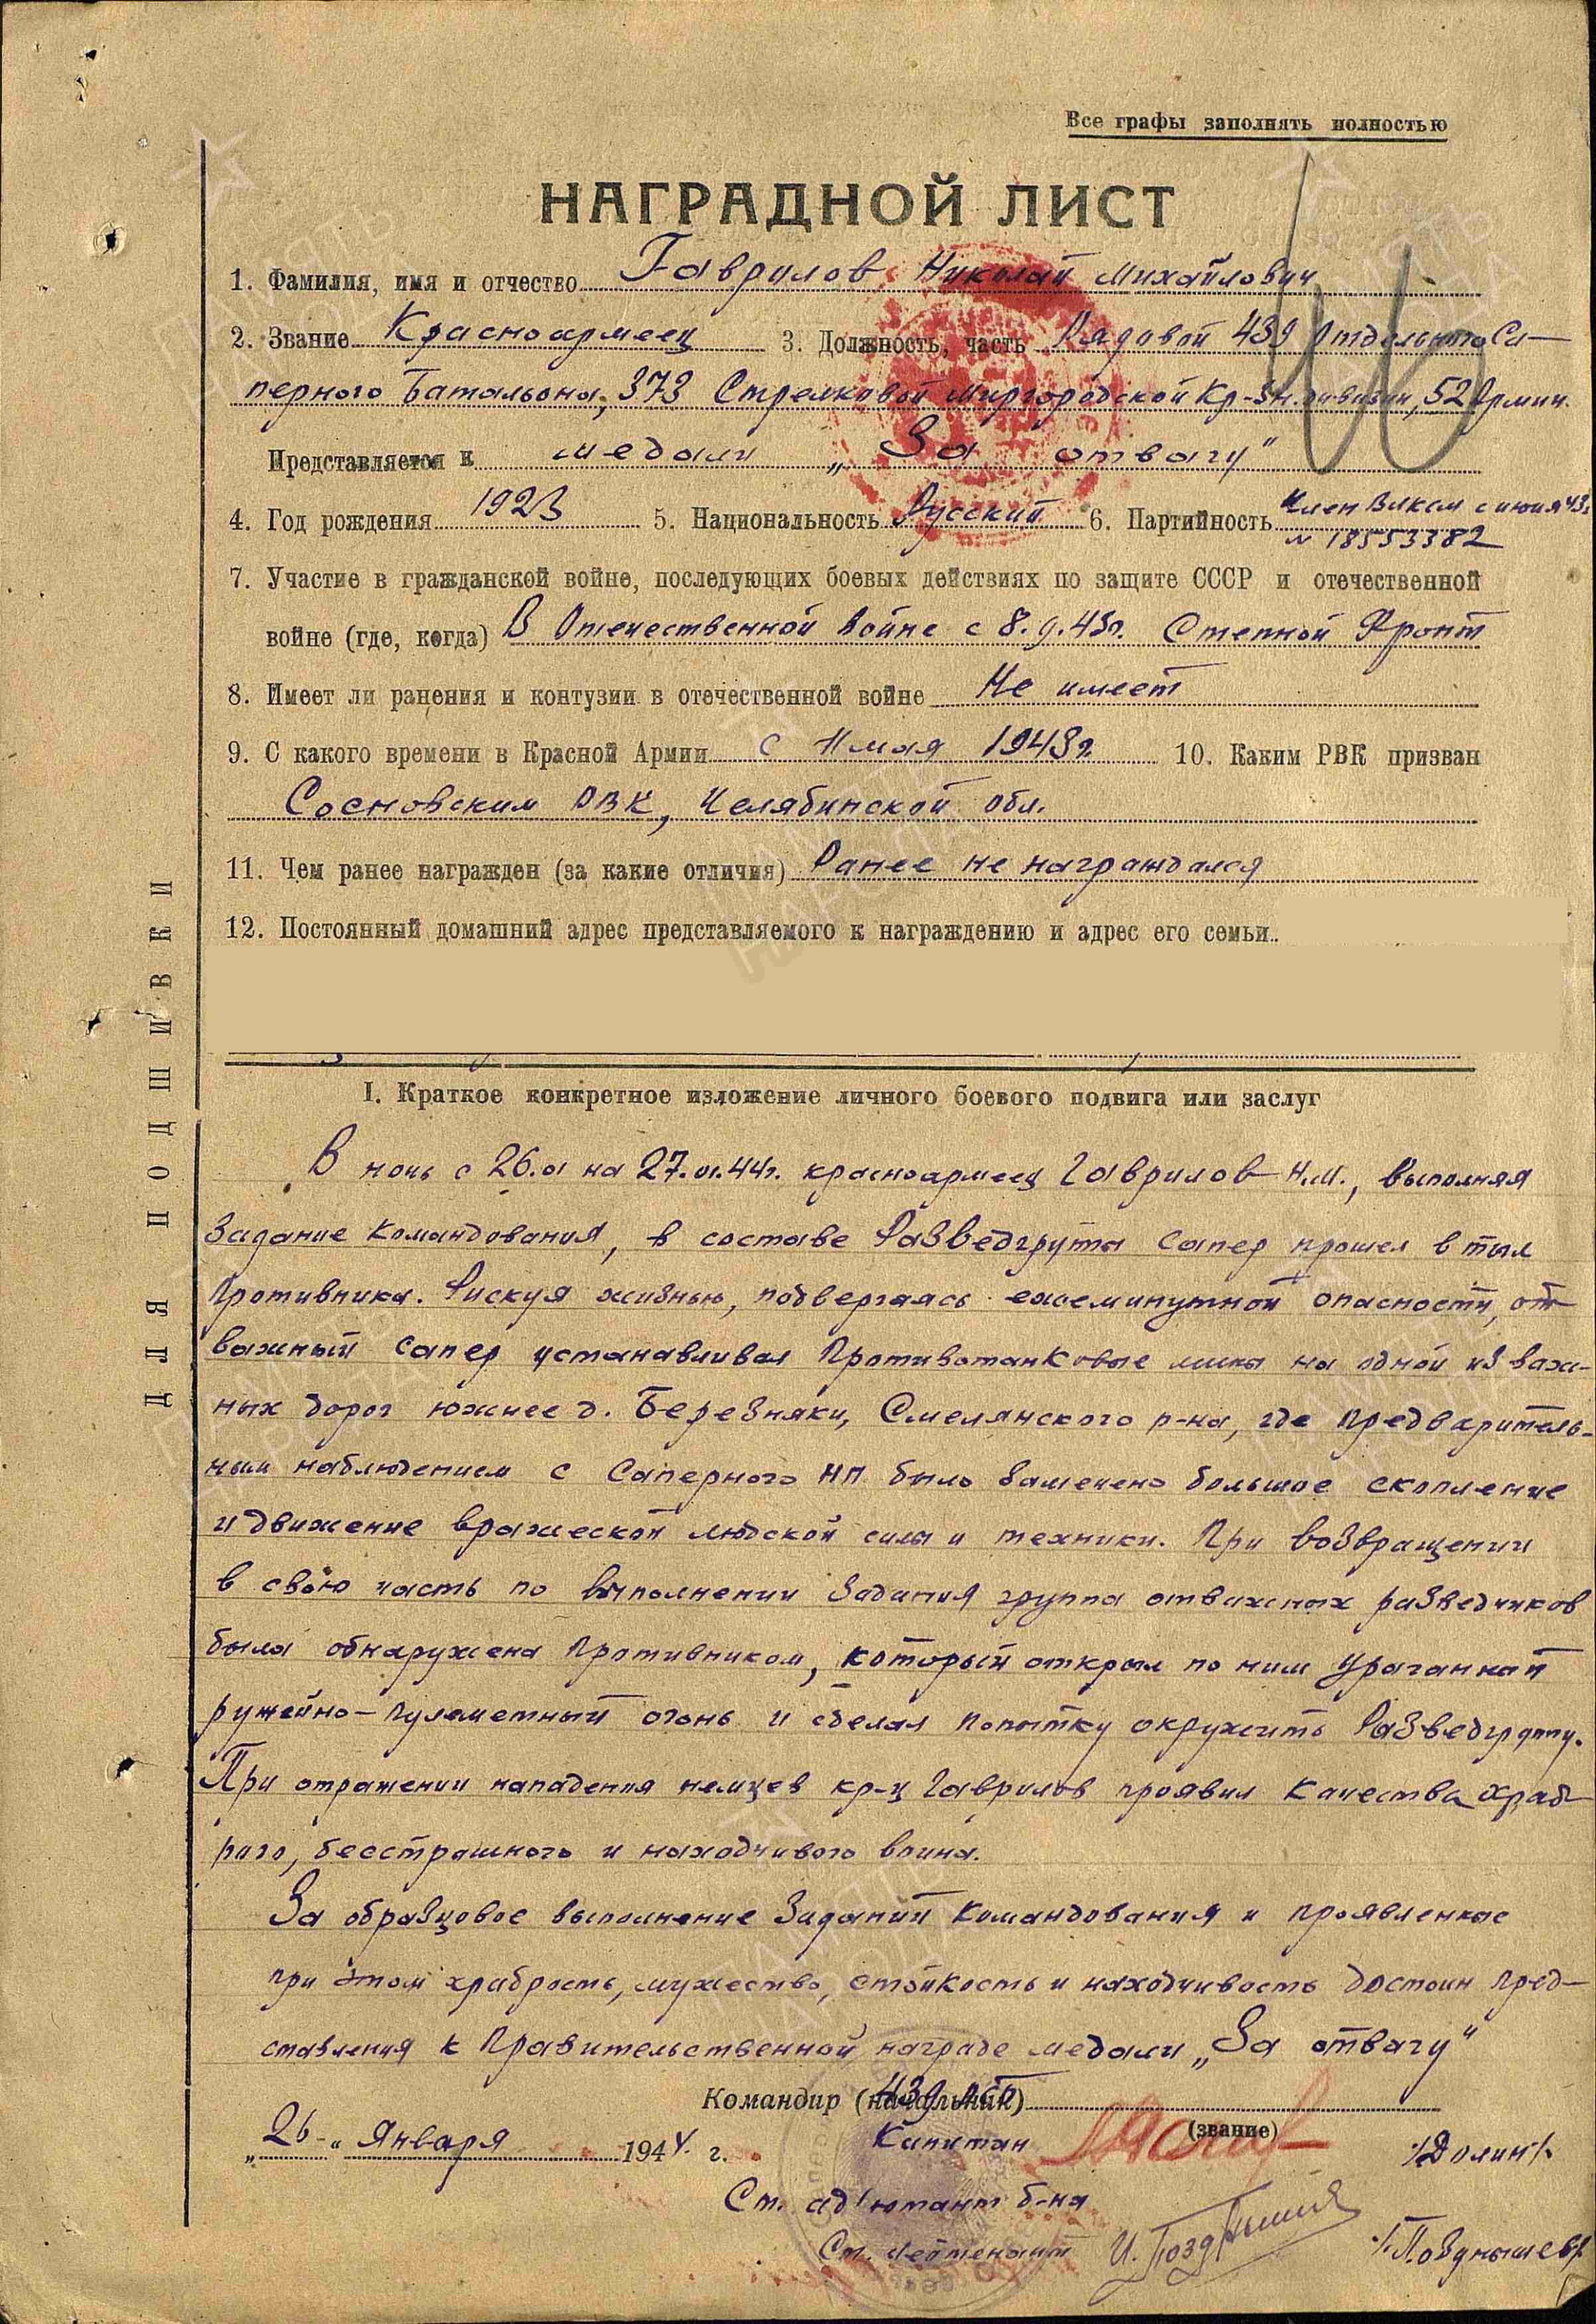 Все графы заполнять полностью
НАГРАДНОЙ ЛИСТ
1. Фамилия, имя и отчество Гаврилов Николай Михайлович
2. Звание Красноармеец 3. Должность, часть Рядовой 439 Отдельного Са-
перного Батальона, 373 Стрелковой Миргородской Кр-Зн. дивизии, 52 Армии.
Представляется к медали „За отвагу"
4. Год рождения 1923 5. Национальность Русский 6. Партийность Член ВЛКСМ с июня 43г.
№ 18553382
7. Участие в гражданской войне, последующих боевых действиях по защите СССР и отечественной
войне (где, когда) В Отечественной войне с 8.9.43г. Степной Фронт
8. Имеет ли ранения и контузии в отечественной войне Не имеет
9. С какого времени в Красной Армии с мая 1943г. 10. Каким РВК призван
Сосновским РВК, Челябинской обл.
11. Чем ранее награжден (за какие отличия) Ранее не награждался
12. Постоянный домашний адрес представляемого к награждению и адрес его семьи
ДЛЯ ПОДШИВКИ
I. Краткое конкретное изложение личного боевого подвига или заслуг
В ночь с 26.01 на 27.01.44г. красноармеец Гаврилов Н.М., выполняя
задание командования, в составе Разведгруппы сапер прошел в тыл
противника. Рискуя жизнью, подвергаясь ежеминутной опасности, от-
важный сапер устанавливал противотанковые мины на одной из важ-
ных дорог южнее д. Березняки, Смелянского р-на, где предваритель-
ным наблюдением с Саперного НП было замечено большое скопление
и движение вражеской людской силы и техники. При возвращении
в свою часть по выполнении задания группа отважных разведчиков
была обнаружена противником, который открыл по ним ураганный
ружейно-пулеметный огонь и сделал попытку окружить Разведгруппу.
При отражении нападения немцев кр-ц Гаврилов проявил качества храб-
рого, бесстрашного и находчивого воина.
За образцовое выполнение заданий командования и проявленные
при этом храбрость, мужество, стойкость и находчивость достоин пред-
ставления к Правительственной награде медали „За отвагу"
Командир (начальник) 439 осб
(звание)
„26" Января 1944 г. Капитан /Долин/.
Ст. ад'ютант б-на
Ст. лейтенант /Позднышев/